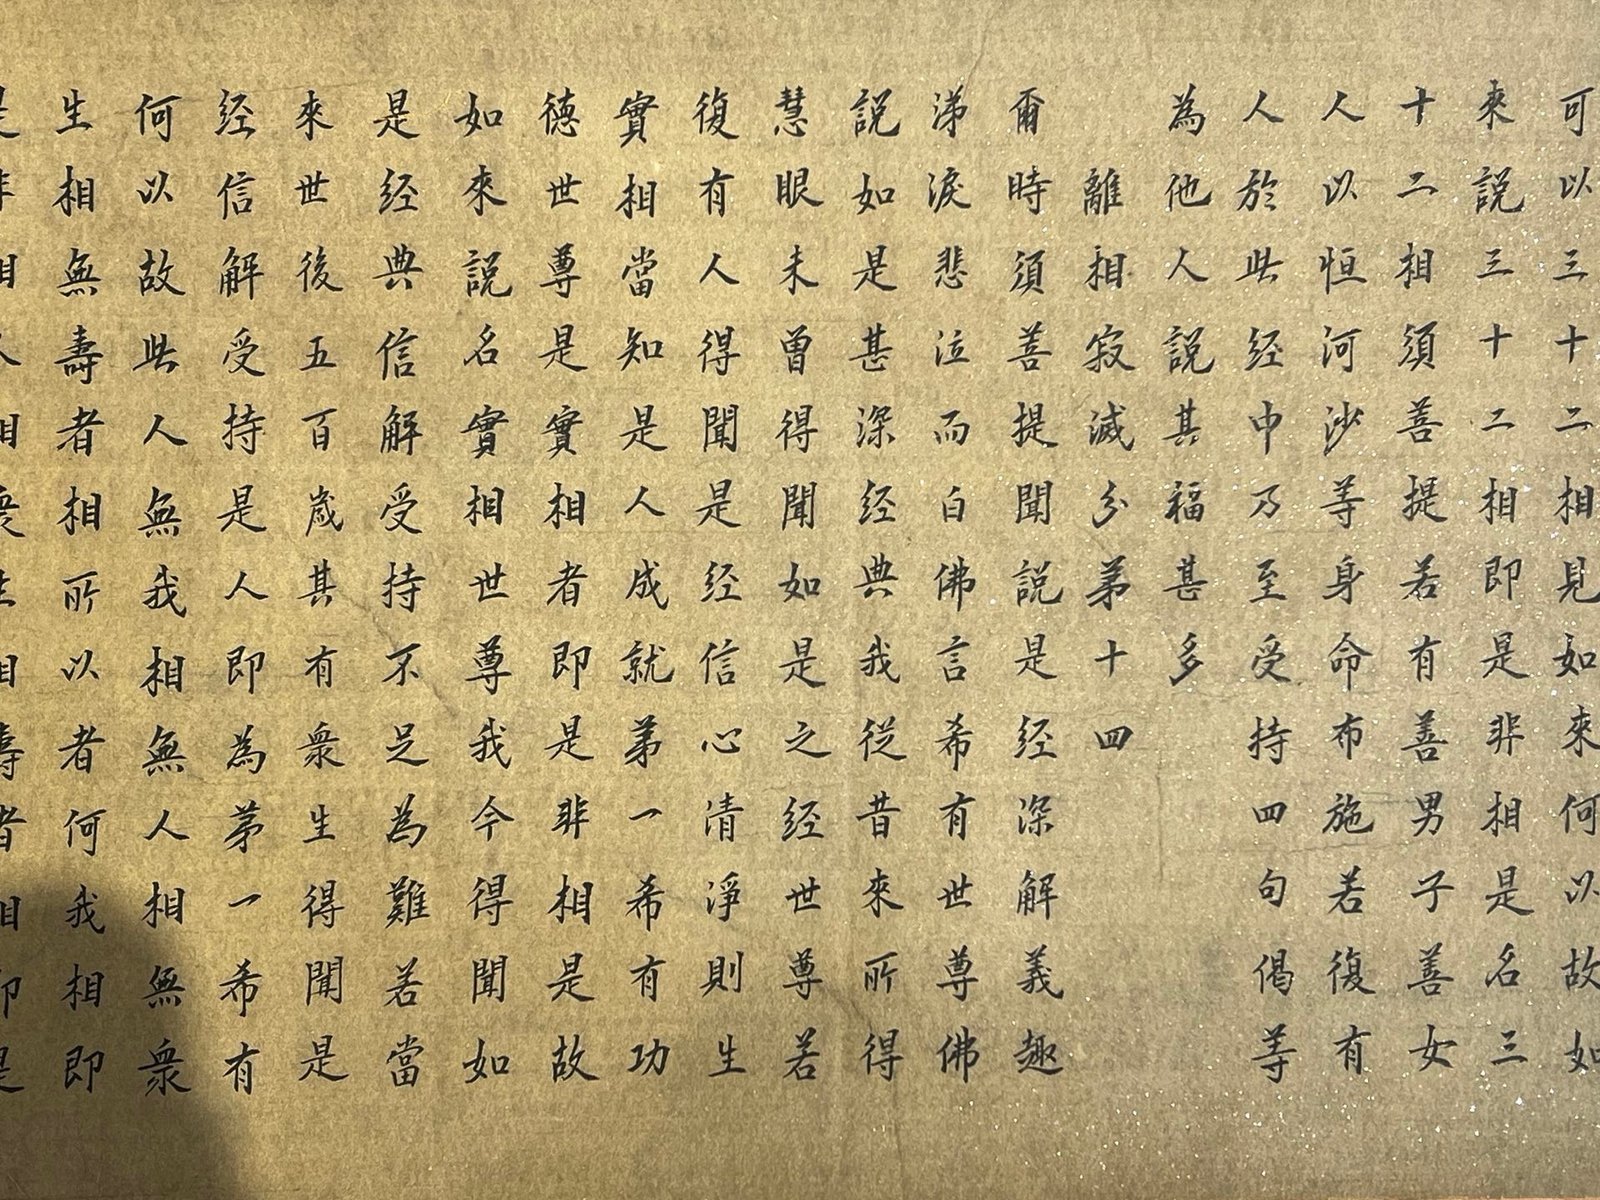 可以三十二相見如來何以故如
來説三十二相即是非相是名三
十二相須菩提若有善男子善女
人以恒河沙等身命布施若復有
人於此经中乃至受持四句偈等
為他人説其福甚多
離相寂滅分第十四
爾時須菩提聞説是经深解義趣
涕淚悲泣而白佛言希有世尊佛
説如是甚深经典我従昔來所得
慧眼未曽得聞如是之经世尊若
復有人得聞是经信心清淨則生
實相當知是人成就第一希有功
徳世尊是實相者即是非相是故
如來説名實相世尊我今得聞如
是经典信解受持不足為難若當
來世後五百嵗其有衆生得聞是
经信解受持是人即為第一希有
何以故此人無我相無人相無衆
生相無壽者相所以者何我相即
是非相人相衆生相壽者相即是